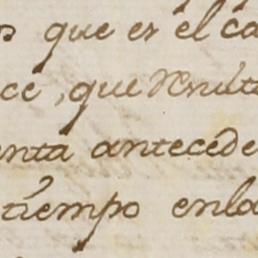 que es el ca
ce, que Resulta
enta antecede
tiempo enla